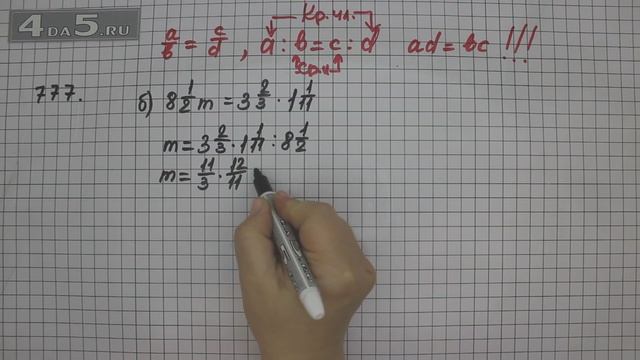 4DA5.RU
кр. чл.
a/b = c/d , a : b = c : d ad = bc !!!
777. б) 8 1/2 m = 3 2/3 · 1 1/11
m = 3 2/3 · 1 1/11 : 8 1/2
m = 11/3 · 12/11